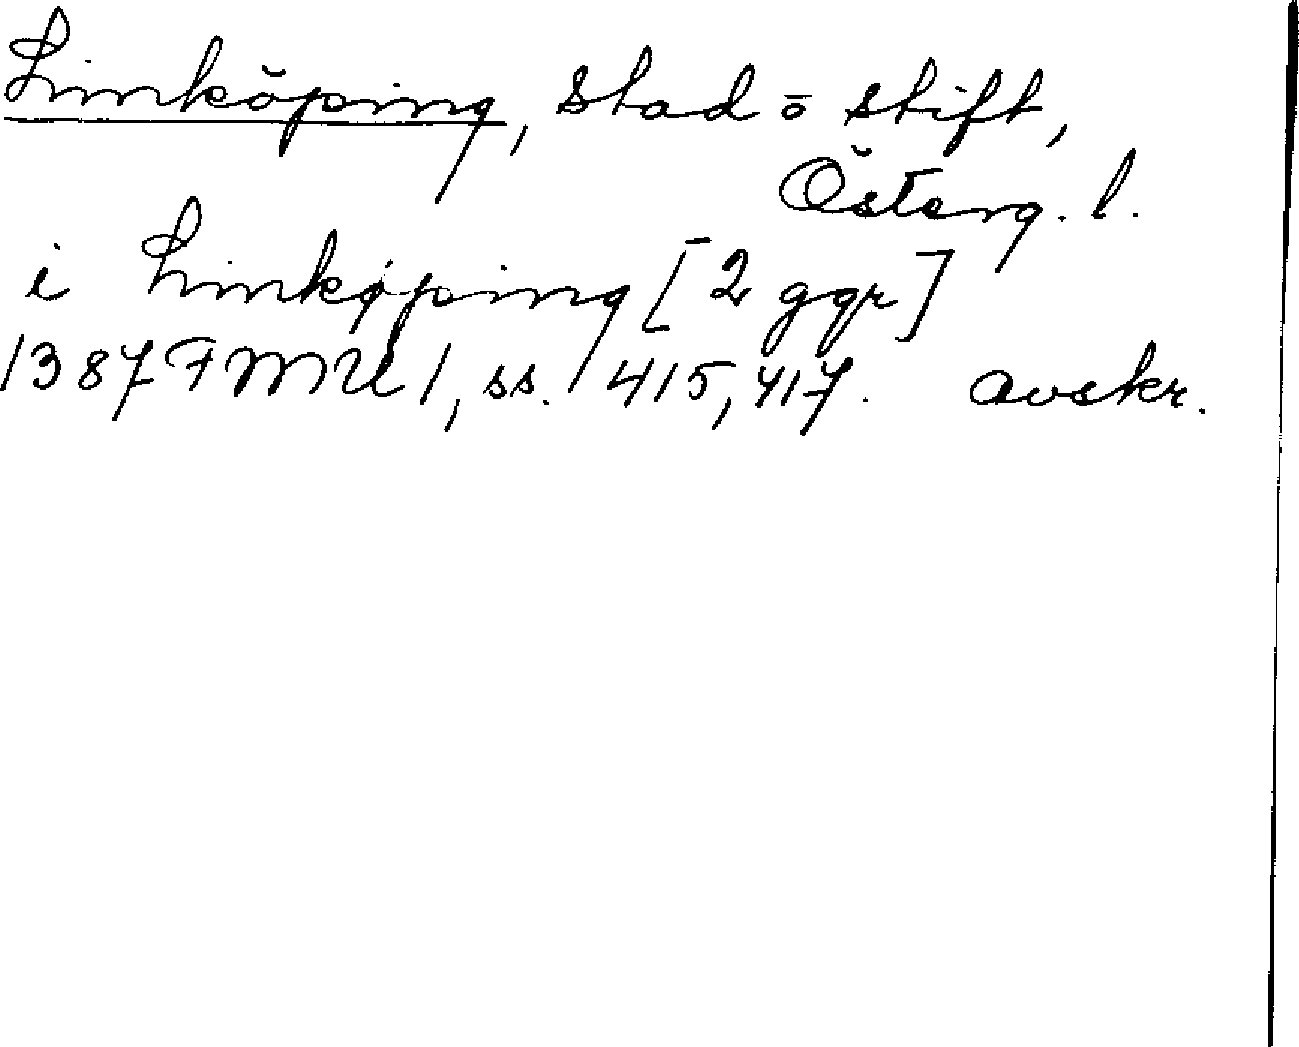 Linköping, stad ö stift,
Österg. l.
i Linkøping [2 ggr]
1387 FMU 1, ss. 415, 417. avskr.